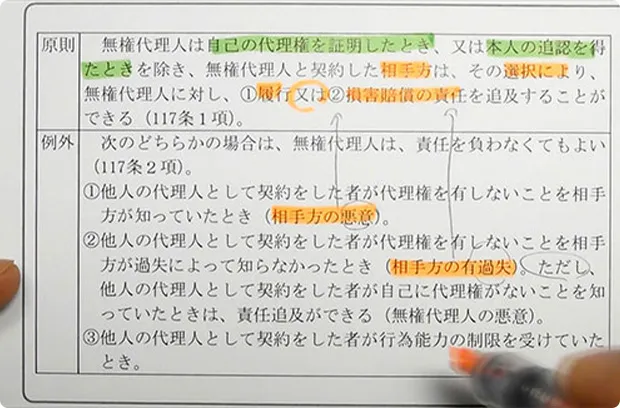 原則
無権代理人は自己の代理権を証明したとき、又は本人の追認を得
たときを除き、無権代理人と契約した相手方は、その選択により、
無権代理人に対し、①履行又は②損害賠償の責任を追及することが
できる(117条1項)。
例外
次のどちらかの場合は、無権代理人は、責任を負わなくてもよい
(117条2項)。
①他人の代理人として契約をした者が代理権を有しないことを相手
方が知っていたとき(相手方の悪意)。
②他人の代理人として契約をした者が代理権を有しないことを相手
方が過失によって知らなかったとき(相手方の有過失)。ただし、
他人の代理人として契約をした者が自己に代理権がないことを知
っていたときは、責任追及ができる(無権代理人の悪意)。
③他人の代理人として契約をした者が行為能力の制限を受けていた
とき。